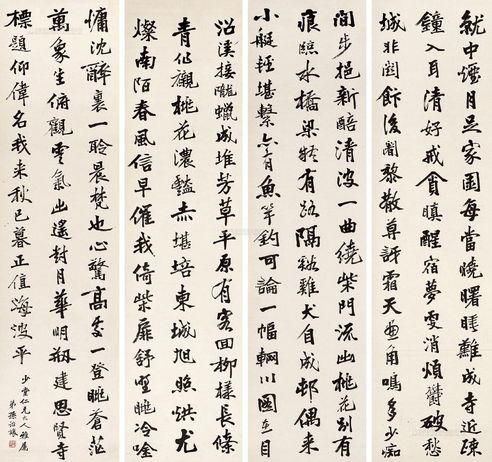 就中煙月是家園每當曉曙睡難成寺近疎
鐘入耳清好戒貪瞋醒宿夢更消煩鬱破愁
城非因飯後闍黎散尊訝霜天畫角鳴多少痴
閒步挹新醅清波一曲繞柴門流出桃花別有
痕照水橋梁疑有路隔谿雞犬自成邨偶來
小艇輕堪繫魚竿釣可論一幅輞川圖在目
沿溪接隴蠟成堆芳草平原有客回柳樣長條
青似桃花濃豔赤堪培東城旭照烘尤
燦南陌春風信早催我倚柴扉舒望眺冷唫
慵沈辭裏一聆晨梵也心驚高處一登眺蒼茫
萬象生俯觀雲氣出遙對月華明剏建思賢寺
標題仰偉名我來秋已暮正值海波平
仁兄大人雅屬
弟孫詒